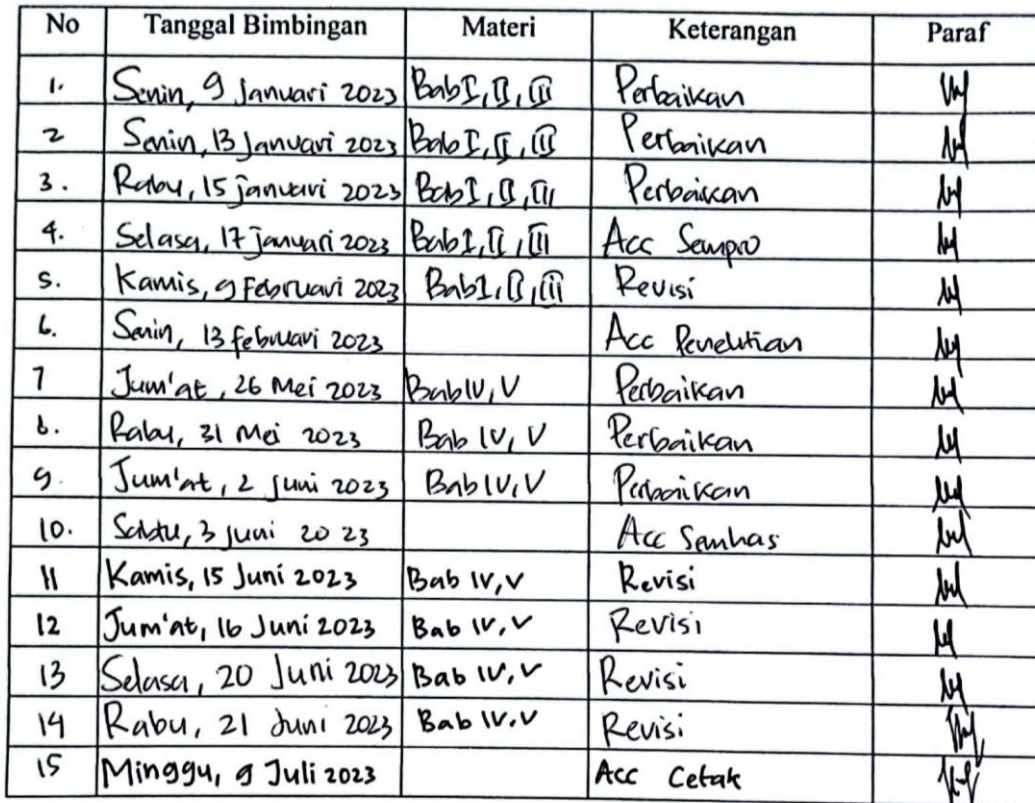 No Tanggal Bimbingan Materi Keterangan Paraf
1. Senin, 9 Januari 2023 Bab I, II, III Perbaikan
2 Senin, 13 Januari 2023 Bab I, II, III Perbaikan
3. Rabu, 15 januari 2023 Bab I, II, III Perbaikan
4. Selasa, 17 januari 2023 Bab I, II, III Acc Sempro
5. Kamis, 9 Februari 2023 Bab I, II, III Revisi
6. Senin, 13 februari 2023 Acc Penelitian
7 Jum'at, 26 Mei 2023 Bab IV, V Perbaikan
8. Rabu, 31 Mei 2023 Bab IV, V Perbaikan
9. Jum'at, 2 juni 2023 Bab IV, V Perbaikan
10. Sabtu, 3 juni 2023 Acc Semhas
11 Kamis, 15 Juni 2023 Bab IV, V Revisi
12 Jum'at, 16 Juni 2023 Bab IV, V Revisi
13 Selasa, 20 Juni 2023 Bab IV, V Revisi
14 Rabu, 21 Juni 2023 Bab IV, V Revisi
15 Minggu, 9 Juli 2023 Acc Cetak